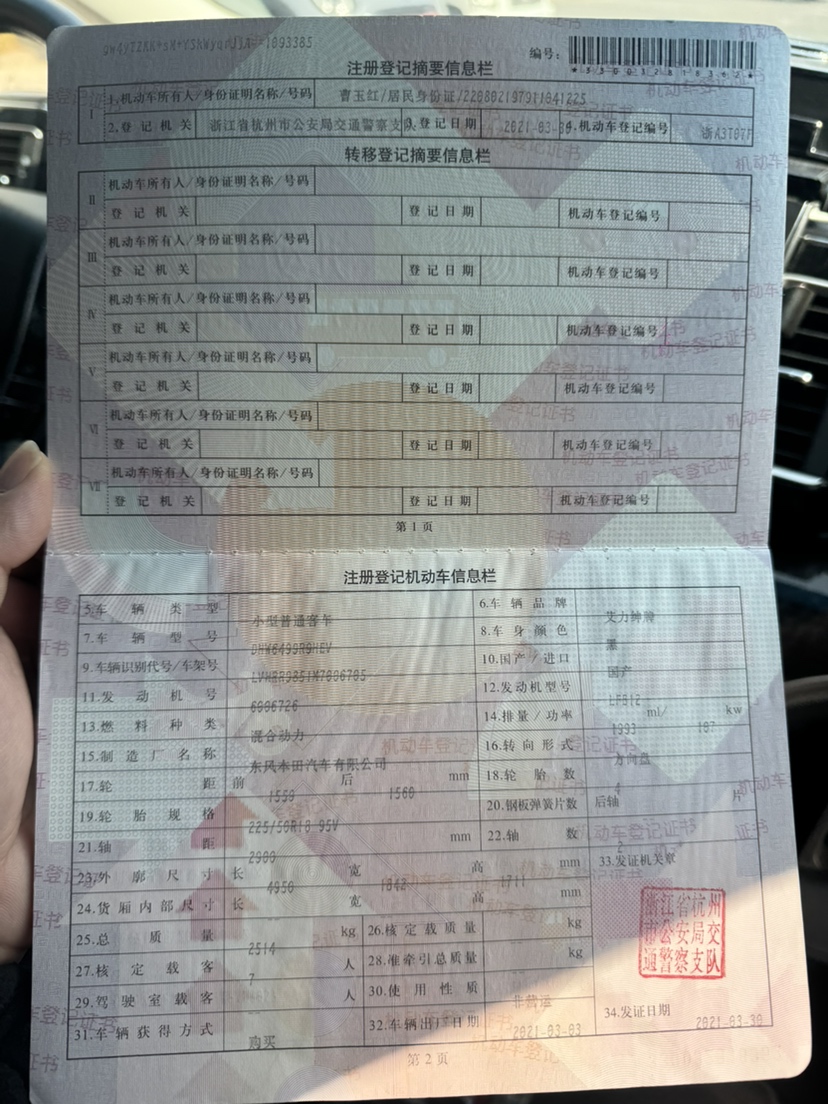 编号：
注册登记摘要信息栏
I 1.机动车所有人/身份证明名称/号码 曹玉红/居民身份证/220802197911041225
2.登记机关 浙江省杭州市公安局交通警察支队 3.登记日期 2021-03-30 4.机动车登记编号
转移登记摘要信息栏
II 机动车所有人/身份证明名称/号码
登记机关 登记日期 机动车登记编号
III 机动车所有人/身份证明名称/号码
登记机关 登记日期 机动车登记编号
IV 机动车所有人/身份证明名称/号码
登记机关 登记日期 机动车登记编号
V 机动车所有人/身份证明名称/号码
登记机关 登记日期 机动车登记编号
VI 机动车所有人/身份证明名称/号码
登记机关 登记日期 机动车登记编号
VII 机动车所有人/身份证明名称/号码
登记机关 登记日期 机动车登记编号
第1页
注册登记机动车信息栏
5.车辆类型 小型普通客车 6.车辆品牌 艾力绅牌
7.车辆型号 DHW6499R9HEV 8.车身颜色 黑
9.车辆识别代号/车架号 10.国产/进口 国产
11.发动机号 6006726 12.发动机型号 LFB12
13.燃料种类 混合动力 14.排量/功率 1993 ml/ 107 kw
15.制造厂名称 东风本田汽车有限公司 16.转向形式 方向盘
17.轮距 前 1559 后 1560 mm 18.轮胎数 4
19.轮胎规格 225/50R18 95V 20.钢板弹簧片数 后轴 片
21.轴距 2900 mm 22.轴数 2
23.外廓尺寸 长 4950 宽 1842 高 1711 mm 33.发证机关章
24.货厢内部尺寸 长 宽 高 mm
浙江省杭州
市公安局交
通警察支队
25.总质量 2514 kg 26.核定载质量 kg
27.核定载客 7 人 28.准牵引总质量 kg
29.驾驶室载客 人 30.使用性质 非营运
31.车辆获得方式 购买 32.车辆出厂日期 2021-03-03 34.发证日期 2021-03-30
第2页